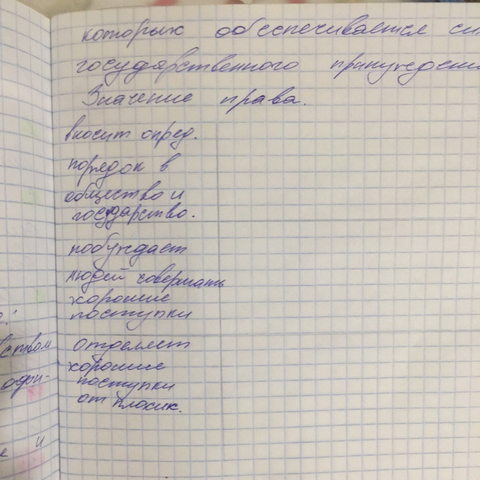 которых обеспечивается си
государственного принуждени
Значение права.
вносит опред.
порядок в
общество и
государство.
побуждает
людей совершать
хорошие
поступки
ством отделяет
хорошие
поступки
от плохих.
и